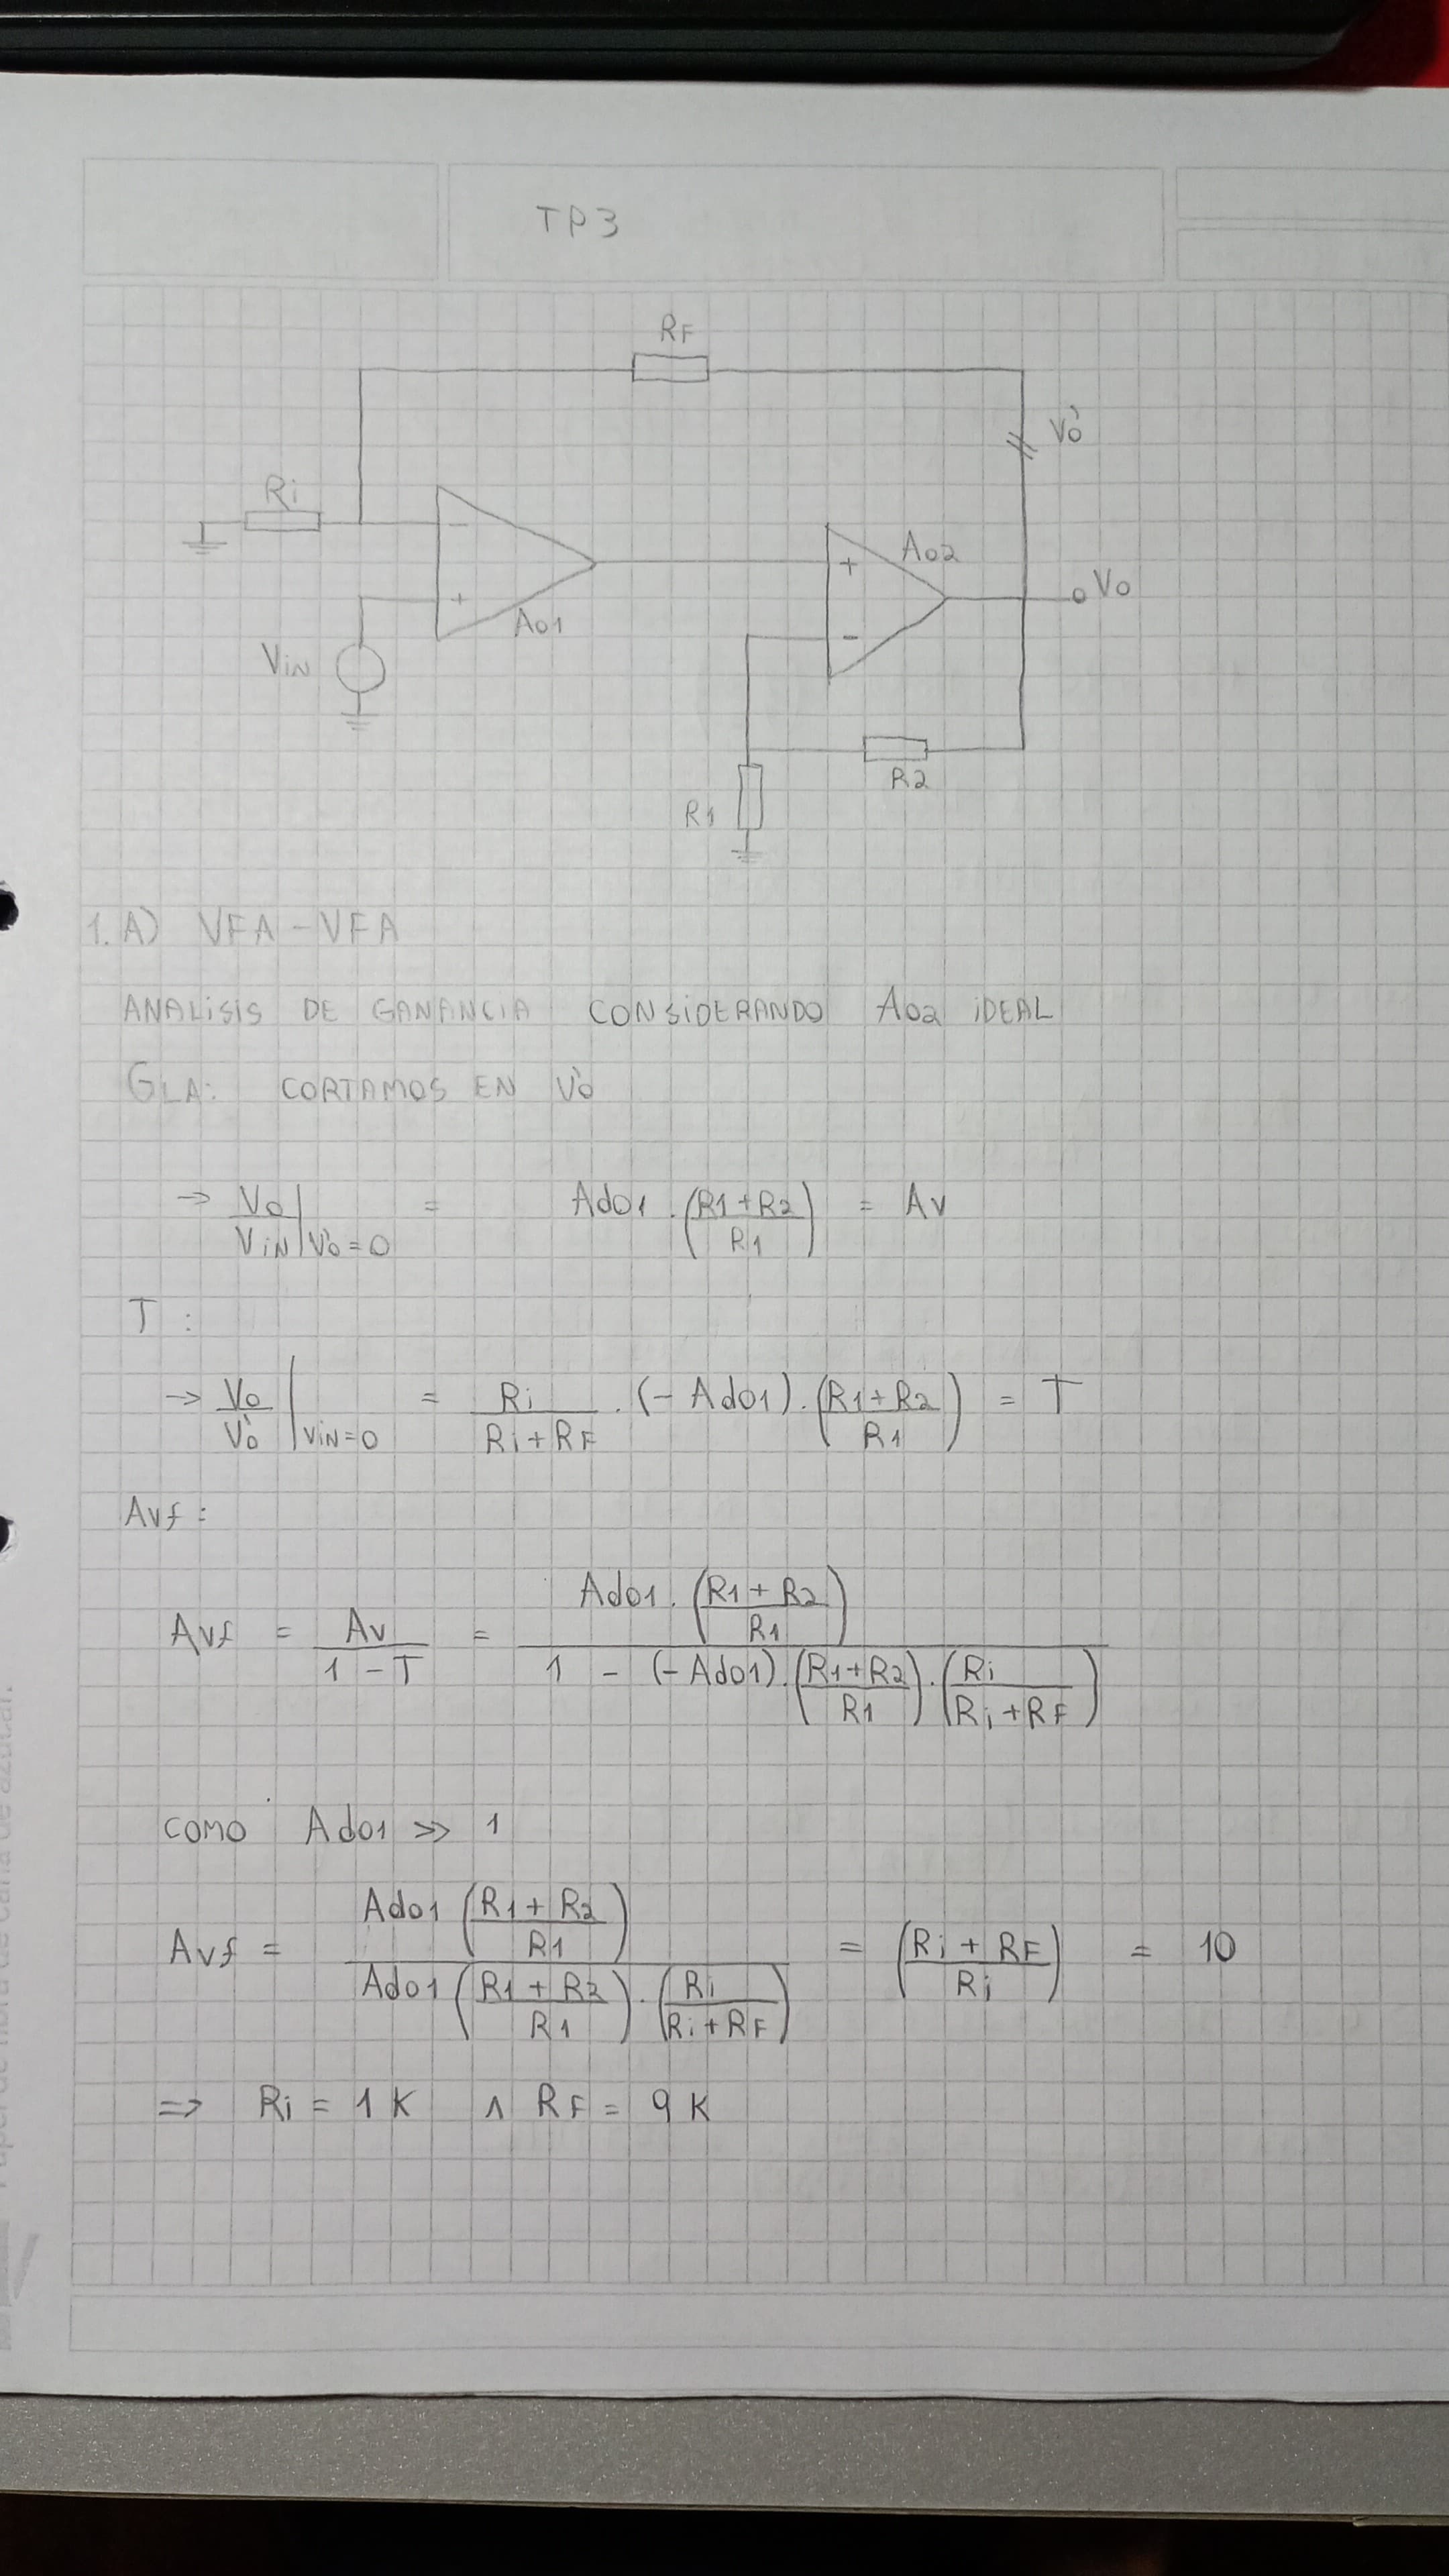 TP3
RF
Vo'
Ri
Ao2
Vo
Ao1
ViN
R2
R1
1. A) VFA - VFA
ANALiSiS DE GANANCIA CONSiDERANDO Ao2 iDEAL
GLA: CORTAMOS EN Vo'
→ Vo/ViN | Vo'=0 = Ado1 . ((R1+R2)/R1) = Av
T :
→ Vo/Vo' | ViN=0 = Ri/(Ri+RF) . (-Ado1) . ((R1+R2)/R1) = T
Avf :
Avf = Av/(1-T) = (Ado1 . ((R1+R2)/R1)) / (1 - (-Ado1) . ((R1+R2)/R1) . (Ri/(Ri+RF)))
como Ado1 >> 1
Avf = (Ado1 ((R1+R2)/R1)) / (Ado1 ((R1+R2)/R1) . (Ri/(Ri+RF))) = ((Ri+RF)/Ri) = 10
⇒ Ri = 1 K ∧ RF = 9 K